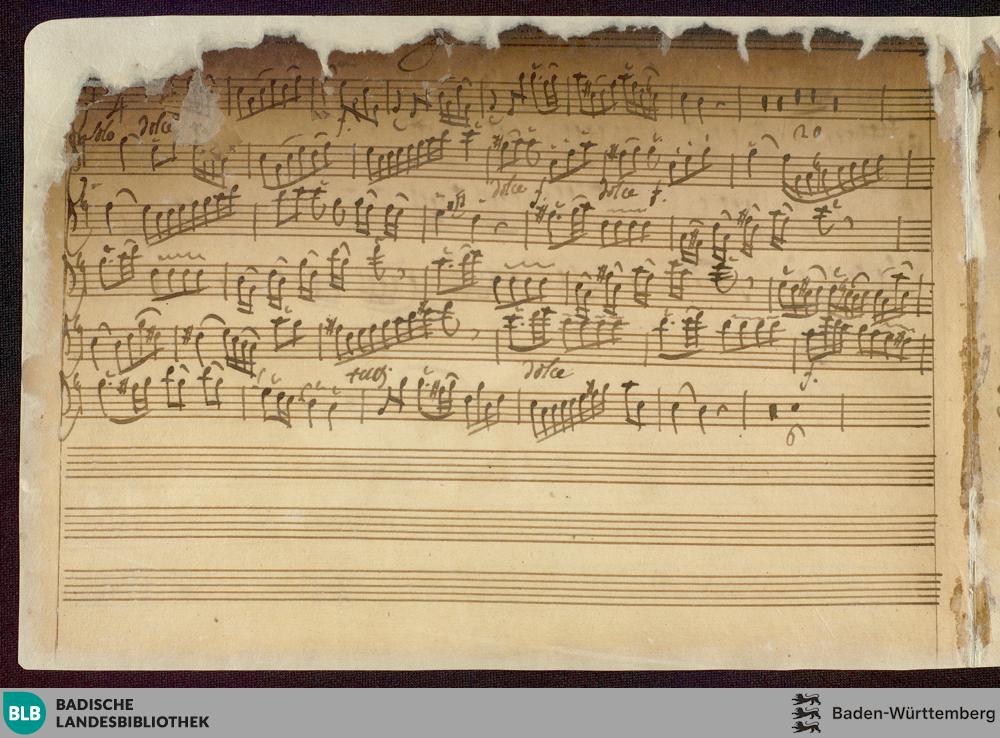 solo dolce f.
20
dolce f. dolce f.
tutti dolce f.
6
BLB BADISCHE LANDESBIBLIOTHEK
Baden-Württemberg